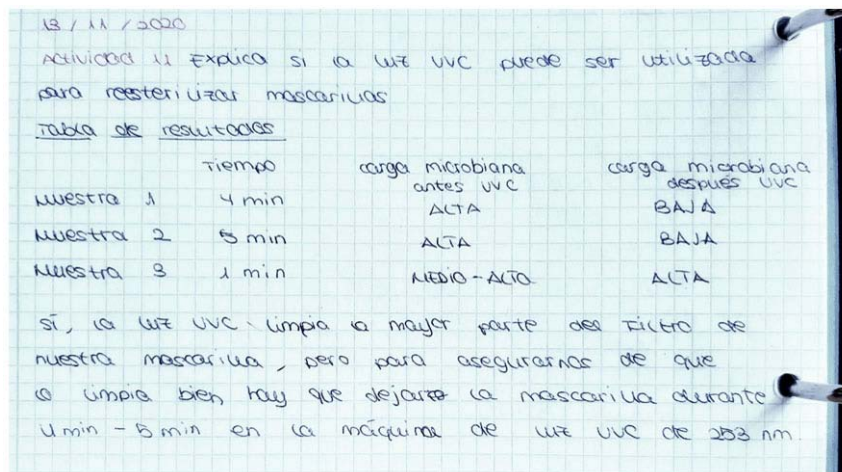 13/11/2020
Actividad 11 Explica si la luz UVC puede ser utilizada
para reesterilizar mascarillas
Tabla de resultados
Tiempo carga microbiana antes UVC carga microbiana después UVC
Muestra 1 4 min ALTA BAJA
Muestra 2 5 min ALTA BAJA
Muestra 3 1 min MEDIO-ALTO ALTA
Sí, la luz UVC limpia la mayor parte del filtro de
nuestra mascarilla, pero para asegurarnos de que
lo limpia bien hay que dejar la mascarilla durante
4 min - 5 min en la máquina de luz UVC de 253 nm.